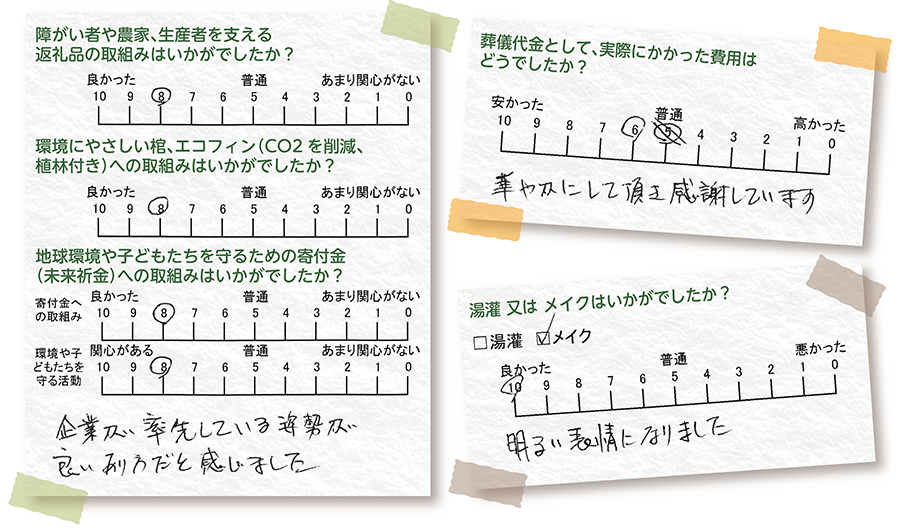 障がい者や農家、生産者を支える
返礼品の取組みはいかがでしたか？
良かった 普通 あまり関心がない
10 9 8 7 6 5 4 3 2 1 0
環境にやさしい棺、エコフィン（CO2を削減、
植林付き）への取組みはいかがでしたか？
良かった 普通 あまり関心がない
10 9 8 7 6 5 4 3 2 1 0
地球環境や子どもたちを守るための寄付金
（未来祈金）への取組みはいかがでしたか？
寄付金へ
の取組み
良かった 普通 あまり関心がない
10 9 8 7 6 5 4 3 2 1 0
環境や子
どもたちを
守る活動
関心がある 普通 あまり関心がない
10 9 8 7 6 5 4 3 2 1 0
企業が率先している姿勢が
良いあり方だと感じました
葬儀代金として、実際にかかった費用は
どうでしたか？
安かった 普通 高かった
10 9 8 7 6 5 4 3 2 1 0
華やかにして頂き感謝しています
湯灌 又は メイクはいかがでしたか？
□湯灌 ☑メイク
良かった 普通 悪かった
10 9 8 7 6 5 4 3 2 1 0
明るい表情になりました